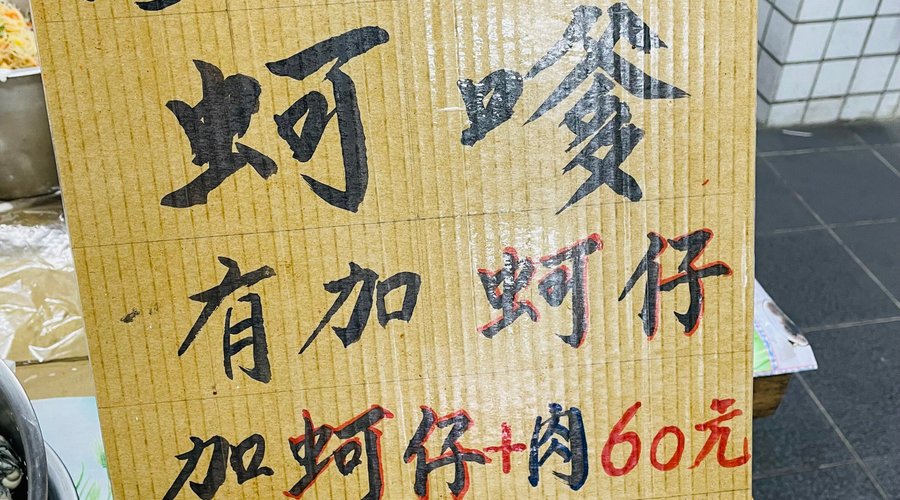 蚵嗲
有加蚵仔
加蚵仔+肉60元